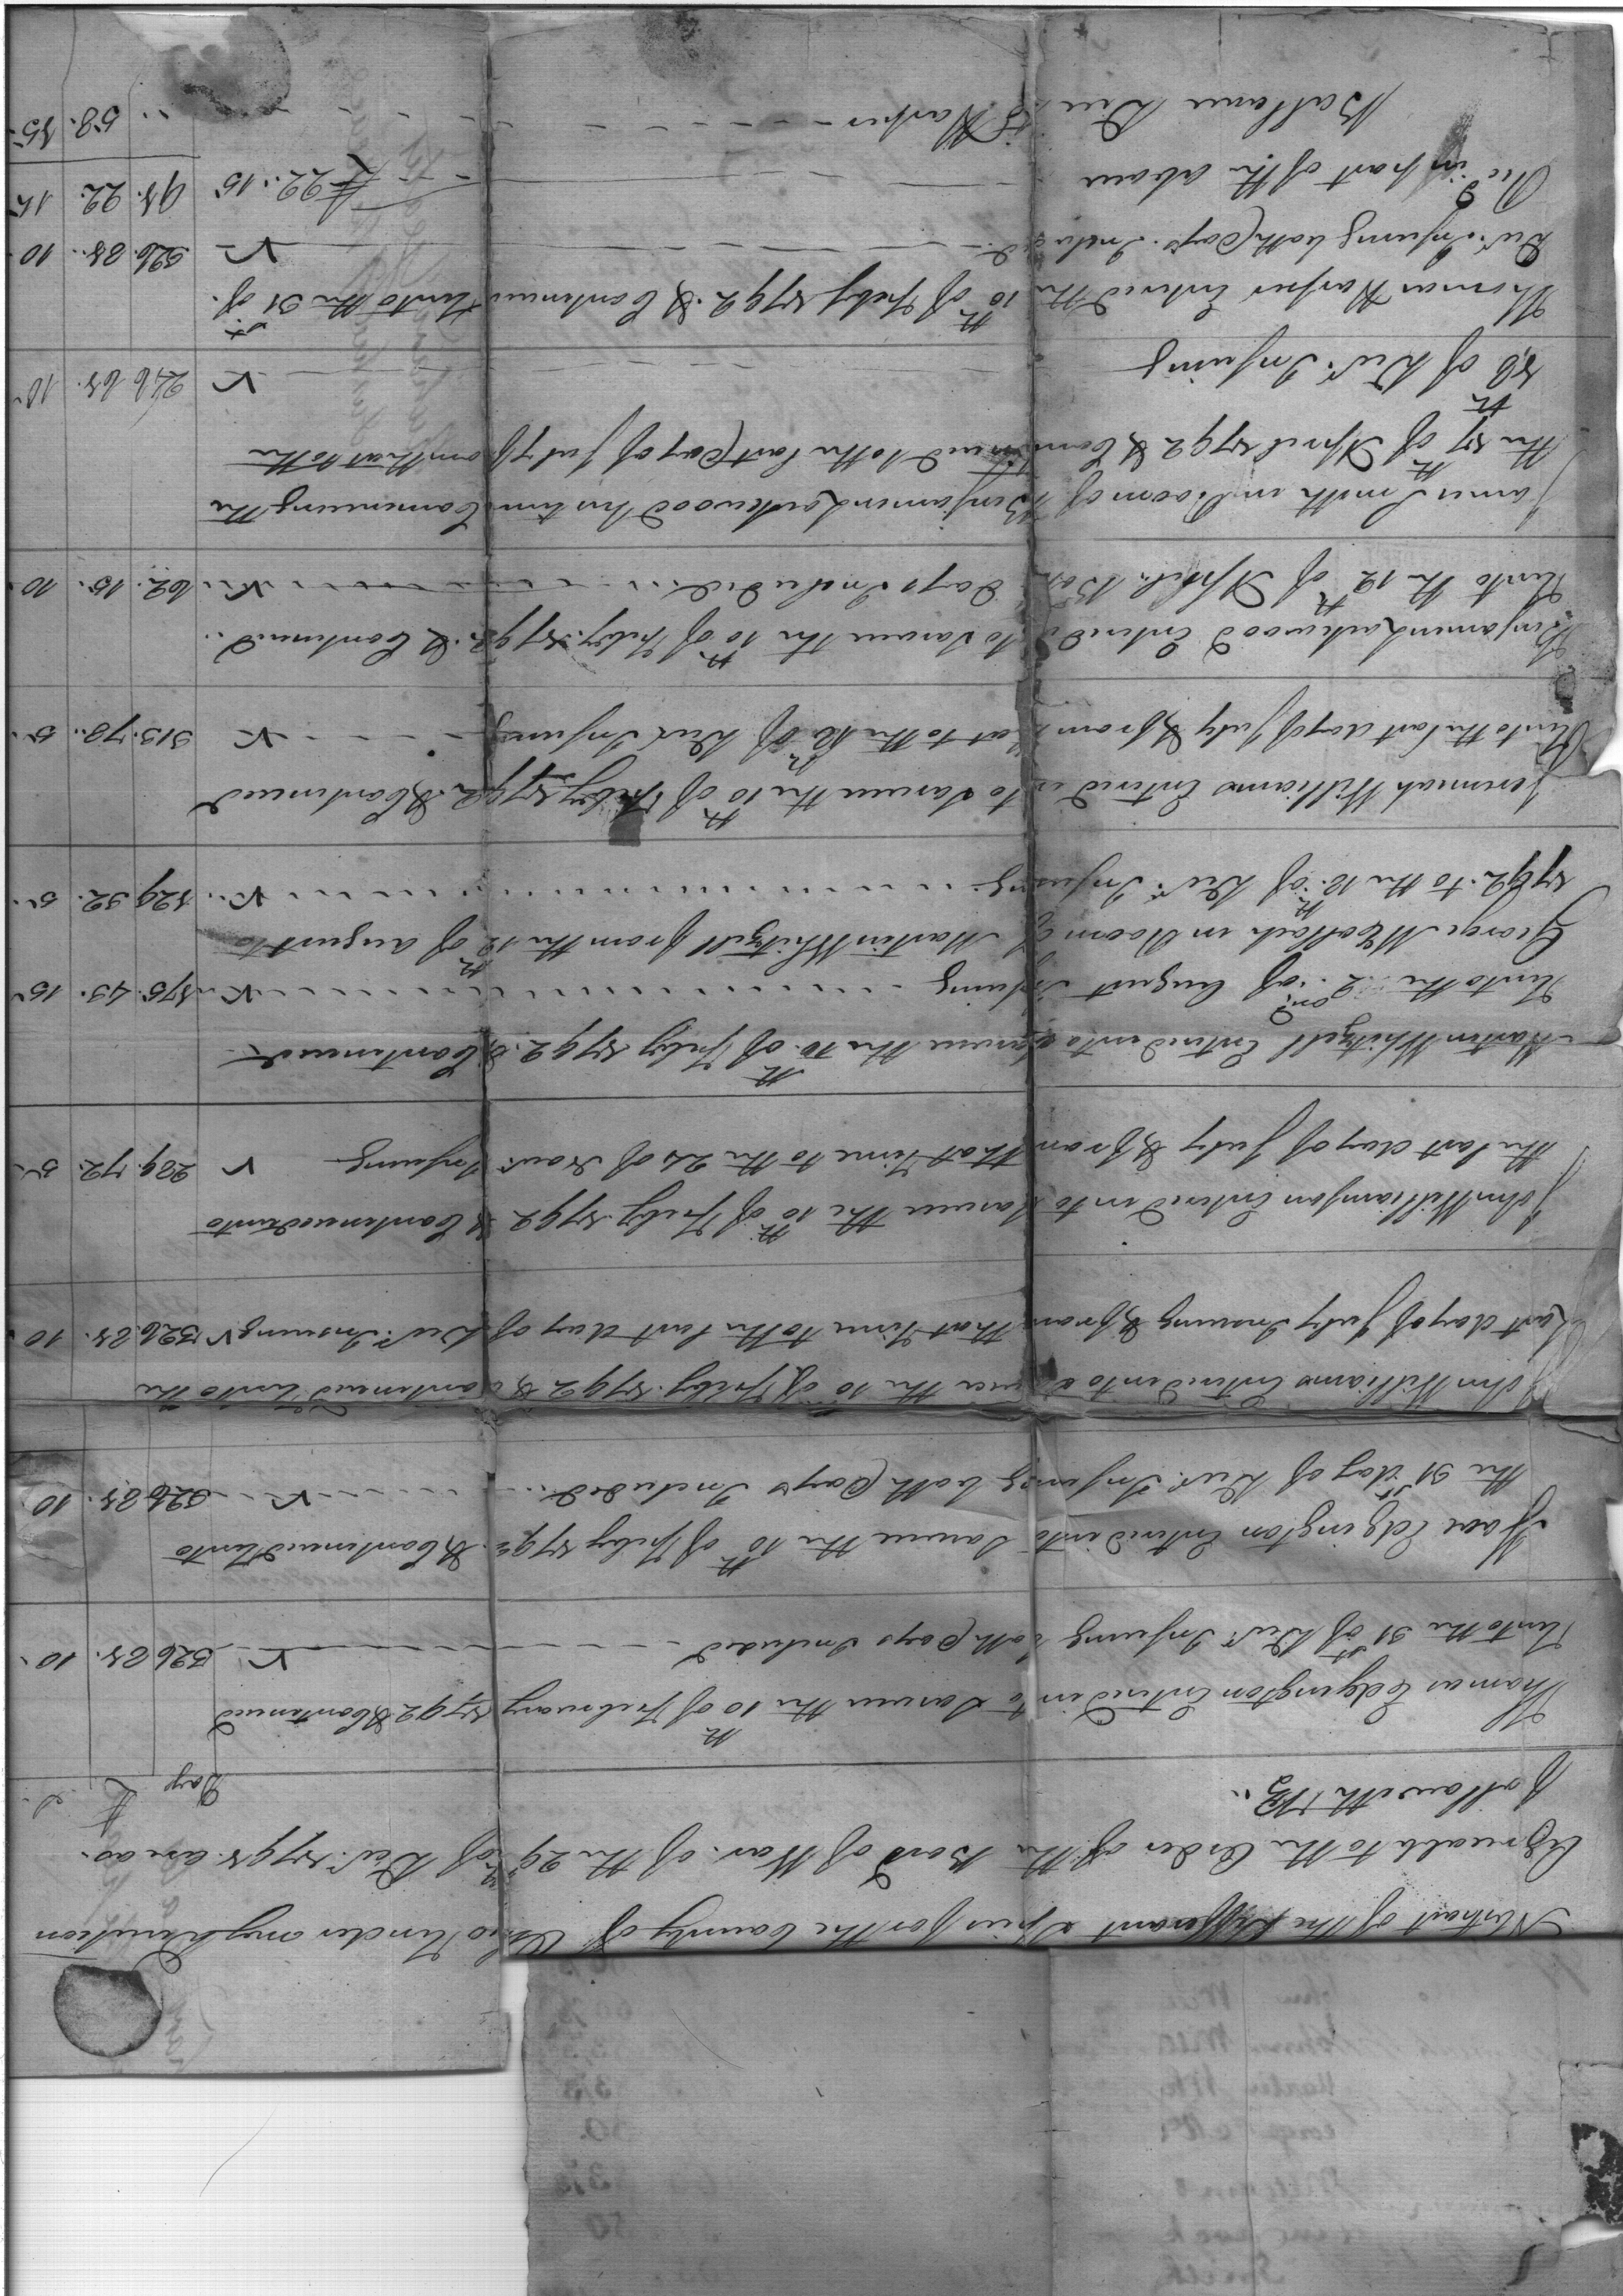 Abstract of the Different Spies for the County of Ohio Under my Direction
Agreeable to the Order of the Board of War of the 29th of Decr. 1791 are as
followeth Viz.
Days £ s
Thomas Edgington Entered into Sarvice the 10th of February 1792 & Continued
Unto the 31st of Decr. Insuing both Days Included V 326 81. 10.
Isaac Edgington Entered into Sarvice the 10th of Feby 1792. & Continued Unto
the 31st day of Decr. Insuing both Days Included V 326 81. 10
John Williams Entered into Sarvice the 10th of Feby. 1792 & Continued Unto the
Last day of July Insuing & from that Time to the Last day of Decr. Insuing V 326. 81. 10
John Williamson Entered into Sarvice the 10th of Feby. 1792 & Continued Unto
the Last day of July & from that Time to the 24 of Novr Insuing V 289. 72. 5.
Martin Whitzell Entered into Sarvice the 10th of Feby 1792. & Continued
Unto the 2ond of August Insuing V 175. 43. 15
George McCollach in Room of Martin Whitzell from the 12th of August to
1792. to the 18th of Decr. Insuing V 129 32. 5.
Jeremiah Williams Entered into Sarvice the 10th of Feby 1792. & Continued
Unto the Last day of July & from that to the 18th of Decr Insuing V 313. 78. 5.
Benjamin Lockwood Entered into Sarvice the 10th of Feby. 1792. & Continued
Unto the 12th of April. Both Days Included V 62. 15. 10.
James Smith in Room of Benjamin Lockwood his time Comencing the
the 17th of April 1792 & Continued to the Last Day of July from that to the
18th of Decr. Insuing V 246 61. 10
Thomas Harper Entered the 10th of Feby 1792. & Continued Unto the 31st of
Decr. Insuing both Days. Included V 326. 81. 10
Recd in part of the above £22.. 15 91. 22. 15
Ballance Due T Harper 58. 15